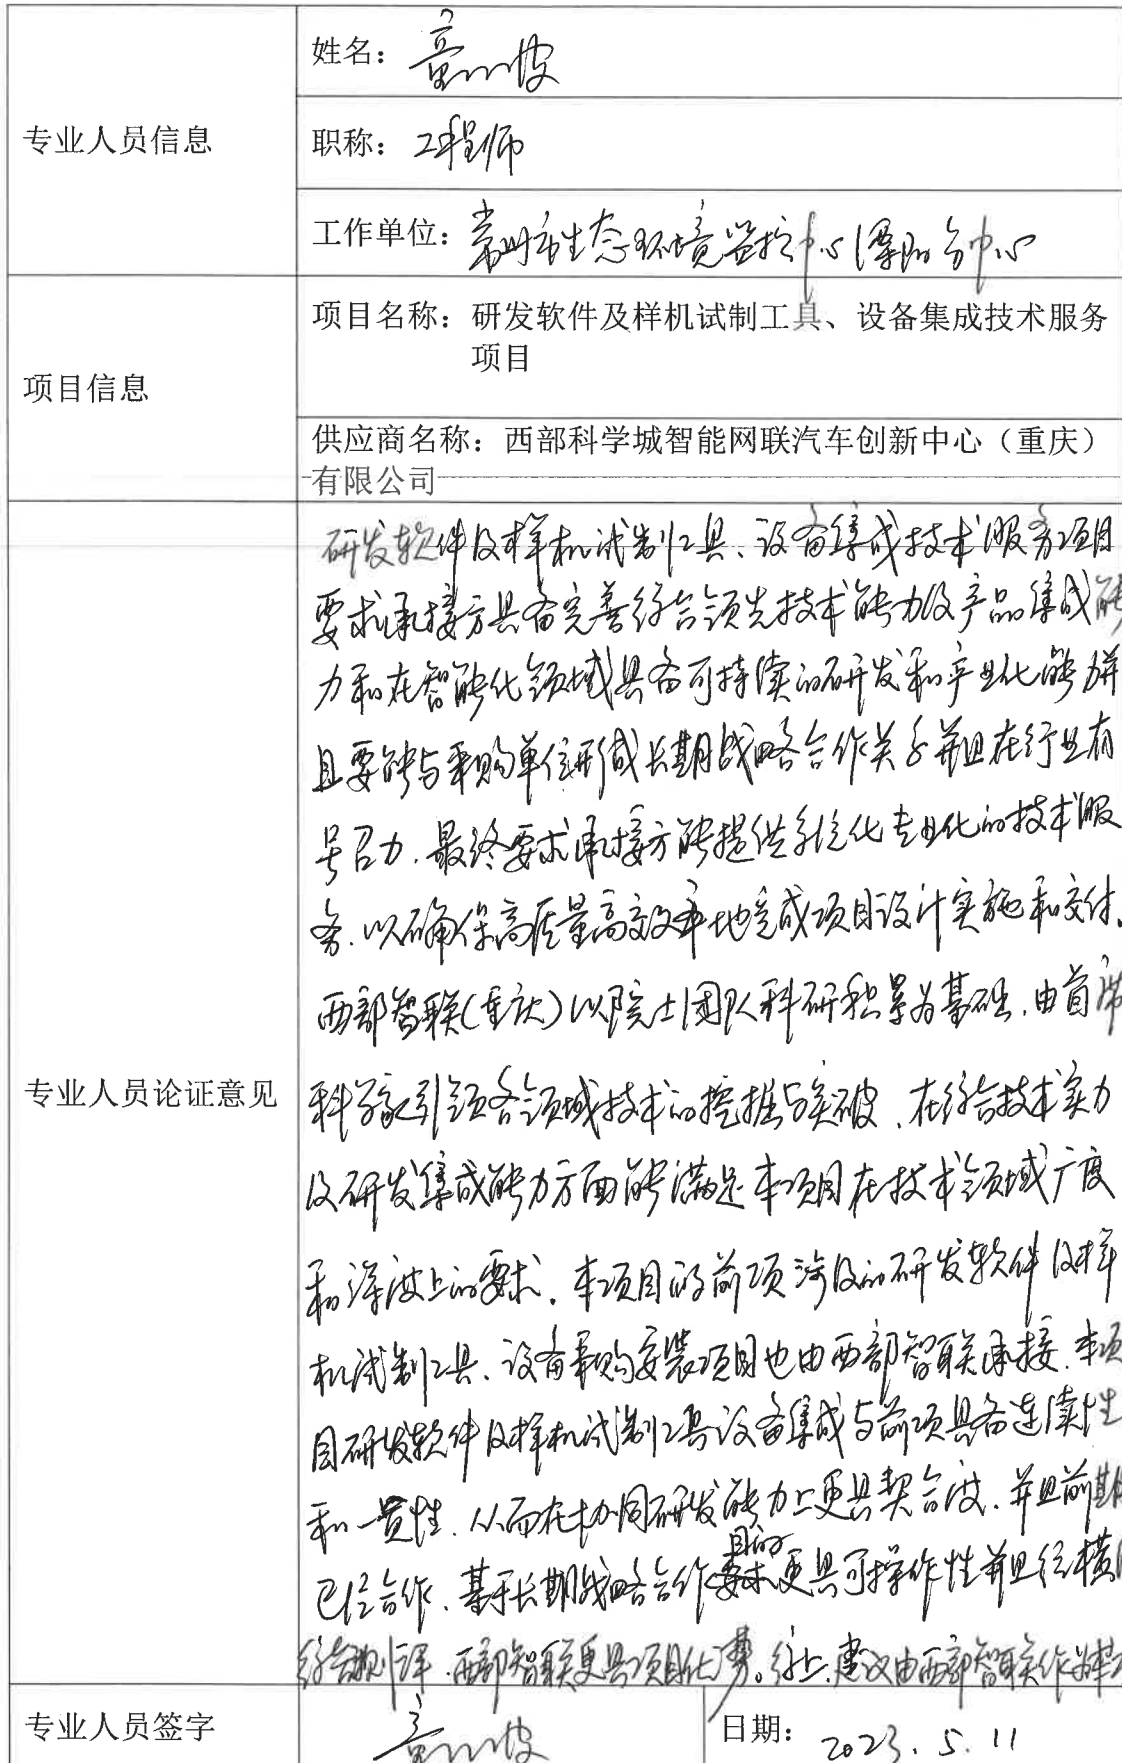 专业人员信息
姓名：
职称：工程师
工作单位：常州市生态环境监控中心溧阳分中心
项目信息
项目名称：研发软件及样机试制工具、设备集成技术服务
项目
供应商名称：西部科学城智能网联汽车创新中心（重庆）
有限公司
专业人员论证意见
研发软件及样机试制工具、设备集成技术服务项目
要求承接方具备完善综合领先技术能力及产品集成能
力和在智能化领域具备可持续的研发和产业化能力并
且要能与采购单位形成长期战略合作关系并且在行业有
号召力，最终要求承接方能提供系统化专业化的技术服
务，以确保高质量高效率地完成项目设计实施和交付。
西部智联（重庆）以院士团队科研积累为基础，由首席
科学家引领各领域技术的挖掘与突破，在综合技术实力
及研发集成能力方面能满足本项目在技术领域广度
和深度上的要求。本项目的前项涉及的研发软件及样
机试制工具、设备采购安装项目也由西部智联承接，本项
目研发软件及样机试制工具设备集成与前项具备连续性
和一贯性，从而在协同研发能力上更具契合度，并且前期
已经合作，基于长期战略合作目的更具可操作性并且经横
综合测评，西部智联更具项目优势。综上，建议由西部智联作为
专业人员签字
日期：2023.5.11